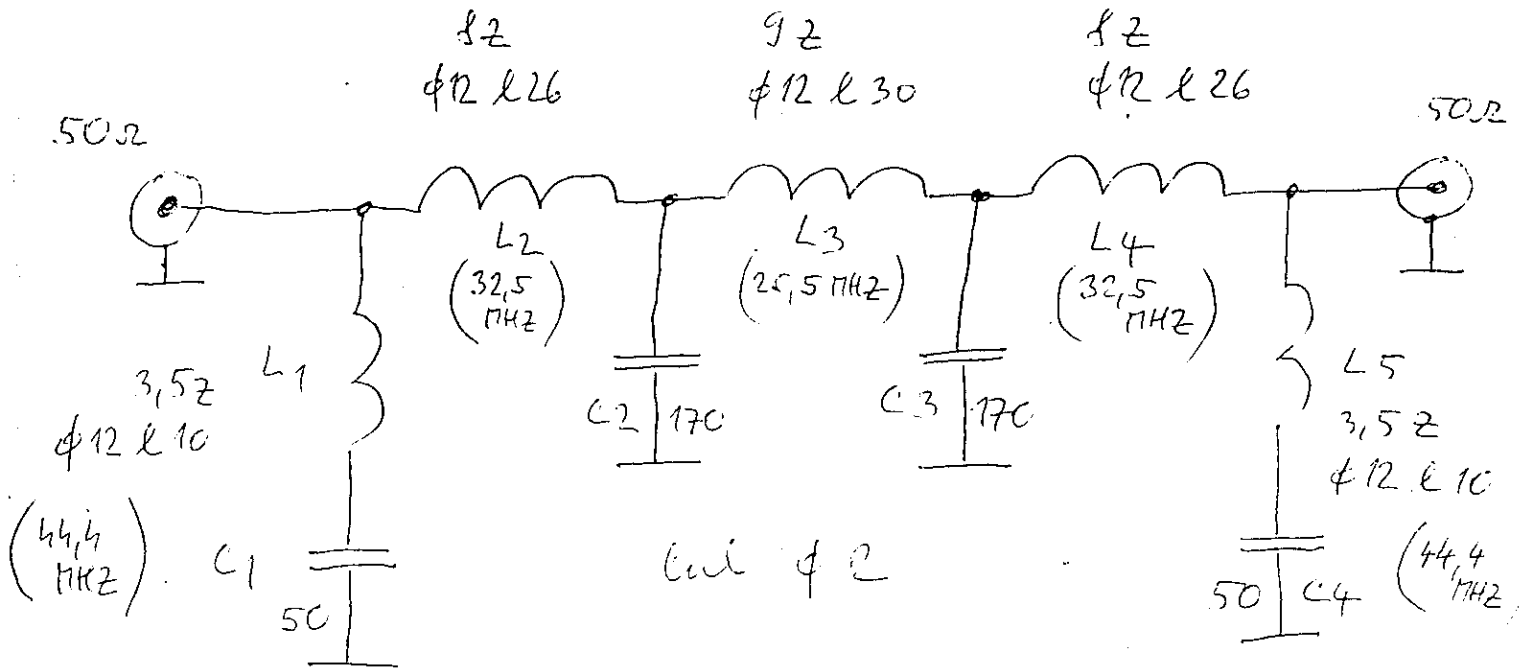 8z
ϕ12 ℓ26
9z
ϕ12 ℓ30
8z
ϕ12 ℓ26
50Ω
50Ω
L2
(32,5
MHZ)
L3
(25,5 MHZ)
L4
(32,5
MHZ)
3,5z
L1
ϕ12 ℓ10
(44,4
MHZ)
C1
50
C2
170
C3
170
L5
3,5z
ϕ12 ℓ10
(44,4
MHZ
50
C4
ϕ 2